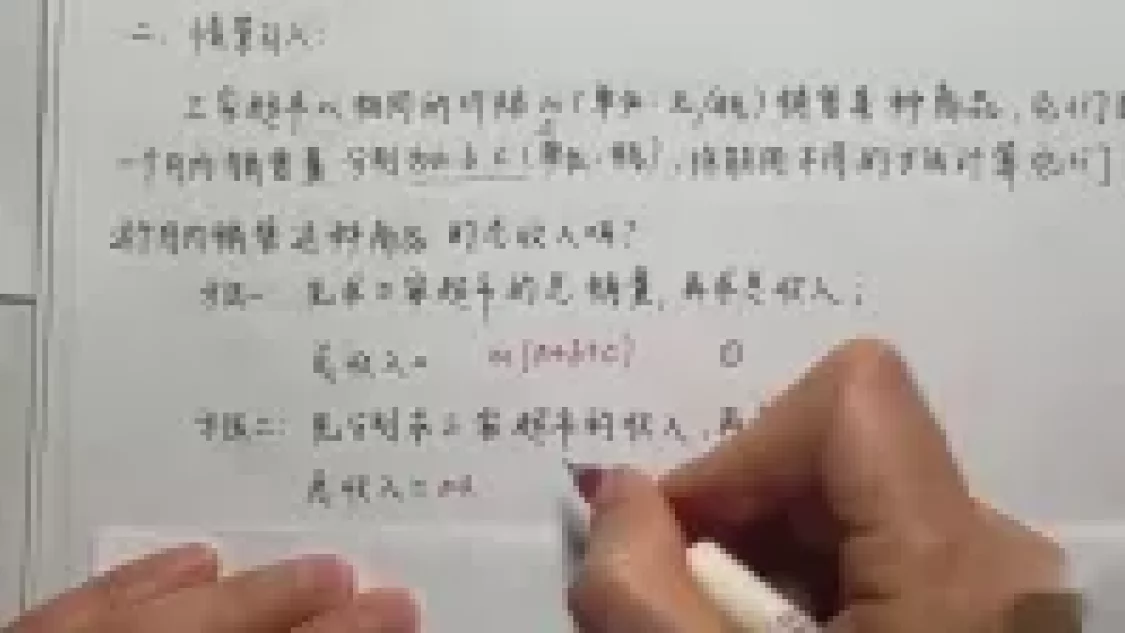 二、情景引入:
三家超市以相同的价格n(单位:元/瓶)销售某种商品,它们在
一个月内的销售量分别为a b c(单位:瓶),你能用不同的方法计算它们
这个月内销售这种商品的总收入吗?
方法一 先求三家超市的总销量,再求总收入;
总收入= m(a+b+c)
方法二:先分别求三家超市的收入,再
总收入=ma